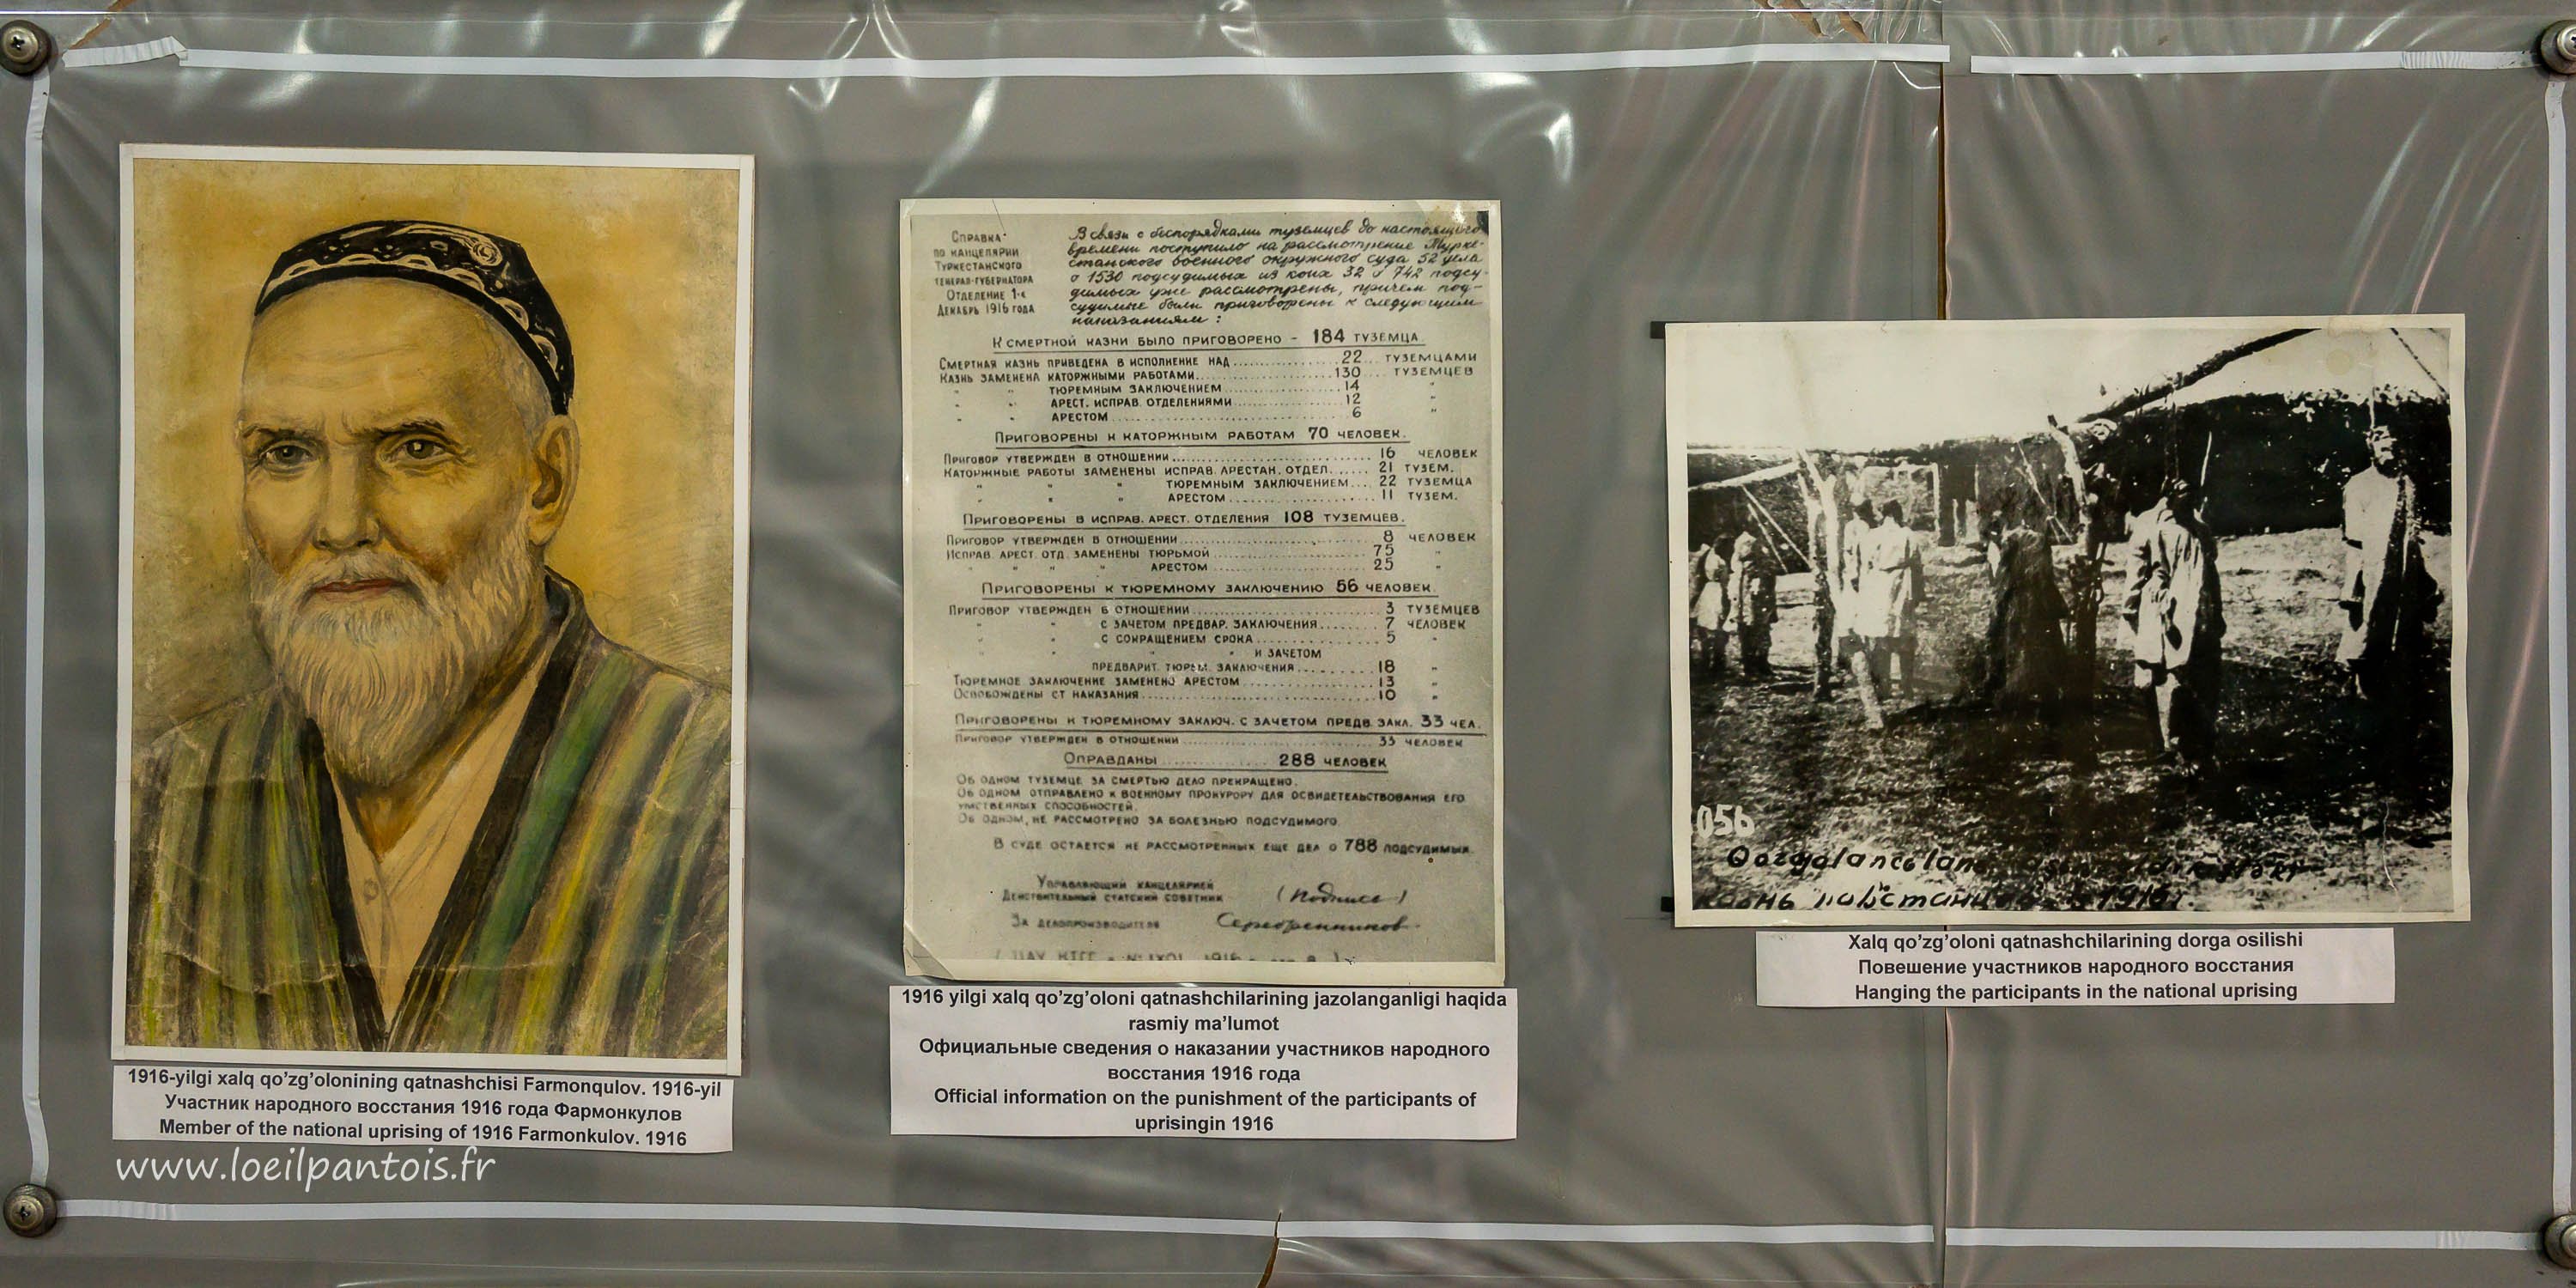 1916-yilgi xalq qo’zg’olonining qatnashchisi Farmonqulov. 1916-yil
Участник народного восстания 1916 года Фармонкулов
Member of the national uprising of 1916 Farmonkulov. 1916
www.loeilpantois.fr
Справка
по канцелярии
Туркестанского
генерал-губернатора
Отделение 1-е
Декабрь 1916 года
В связи с беспорядками туземцев до настоящего
времени поступило на рассмотрение Турке-
станского военного окружного суда 52 дела
о 1530 подсудимых из коих 32 о 742 подсу-
димых уже рассмотрены, причем под-
судимые были приговорены к следующим
наказаниям:
К смертной казни было приговорено - 184 туземца
Смертная казнь приведена в исполнение над 22 туземцами
Казнь заменена каторжными работами 130 туземцев
" " тюремным заключением 14 "
" " арест. исправ. отделениями 12 "
" " арестом 6 "
Приговорены к каторжным работам 70 человек.
Приговор утвержден в отношении 16 человек
Каторжные работы заменены исправ. арестан. отдел. 21 тузем.
" " " тюремным заключением 22 туземца
" " " арестом 11 тузем.
Приговорены в исправ. арест. отделения 108 туземцев.
Приговор утвержден в отношении 8 человек
Исправ. арест. отд. заменены тюрьмой 75 "
" " " " арестом 25 "
Приговорены к тюремному заключению 56 человек.
Приговор утвержден в отношении 3 туземцев
" " с зачетом предвар. заключения 7 человек
" " с сокращением срока 5 "
" " и зачетом
предварит. тюрем. заключения 18 "
Тюремное заключение заменено арестом 13 "
Освобождены от наказания 10 "
Приговорены к тюремному заключ. с зачетом предв. закл. 33 чел.
Приговор утвержден в отношении 33 человек
Оправданы 288 человек
Об одном туземце за смертью дело прекращено.
Об одном отправлено к военному прокурору для освидетельствования его
умственных способностей.
Об одном, не рассмотрено за болезнью подсудимого.
В суде остается не рассмотренных еще дел о 788 подсудимых
Управляющий канцелярией
Действительный статский советник (подпись)
За делопроизводителя Серебренников
1916 yilgi xalq qo’zg’oloni qatnashchilarining jazolanganligi haqida
rasmiy ma’lumot
Официальные сведения о наказании участников народного
восстания 1916 года
Official information on the punishment of the participants of
uprisingin 1916
056
казнь 1916г.
Xalq qo’zg’oloni qatnashchilarining dorga osilishi
Повешение участников народного восстания
Hanging the participants in the national uprising